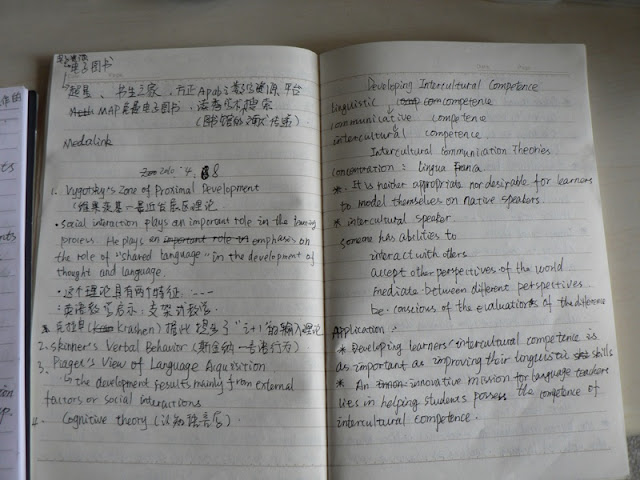 电子图书
超星、书生之家、方正Apabi数字资源平台
MAP 电子图书 读者 搜索
Medalink
1. Vygotsky's Zone of Proximal Development
• social interaction plays an important role in the learning
process. He plays an important role in emphasis on
the role of "shared language" in the development of
thought and language.
• 这个理论具有两个特征:
英语教学启示:支架式教学
克拉申 Krashen) 据此提出了"i+1"的输入理论
2. Skinner's Verbal Behavior (斯金纳—言语行为)
3. Piager's View of Language Aquisition
the development results mainly from external
factors or social interactions
4. Cognitive theory (认知
Developing Intercultural Competence
linguistic comp competence
communicative competence
intercultural competence
Intercultural Communication Theories
concentration: Lingua Franca
* It is neither appropriate nor desirable for learners
to model themselves on native speakers.
* intercultural speaker
someone has abilities to
interact with others
accept other perspectives of the world
mediate between different perspectives
be conscious of the evaluations of the difference
Application:
* Developing learners' intercultural competence is
as important as improving their linguistic skills
* An innovative mission for language teachers
lies in helping students possess the competence of
intercultural competence.